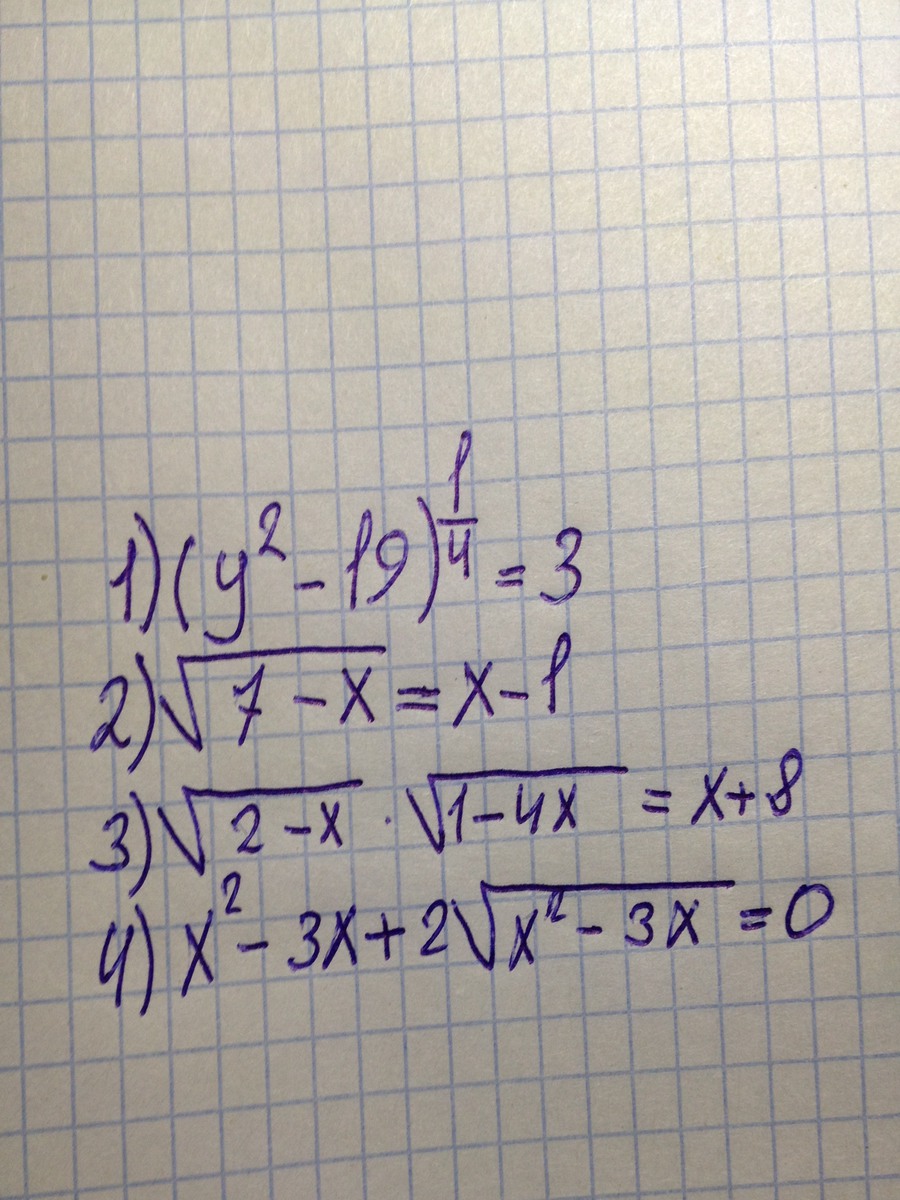 1) (y² - 19)^(1/4) = 3
2) √(7 - x) = x - 1
3) √(2 - x) · √(1 - 4x) = x + 8
4) x² - 3x + 2√(x² - 3x) = 0